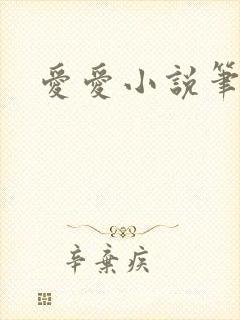 愛愛小說筆
辛棄疾